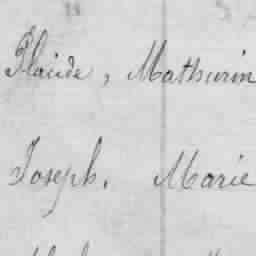 Placide, Mathurin
Joseph. Marie